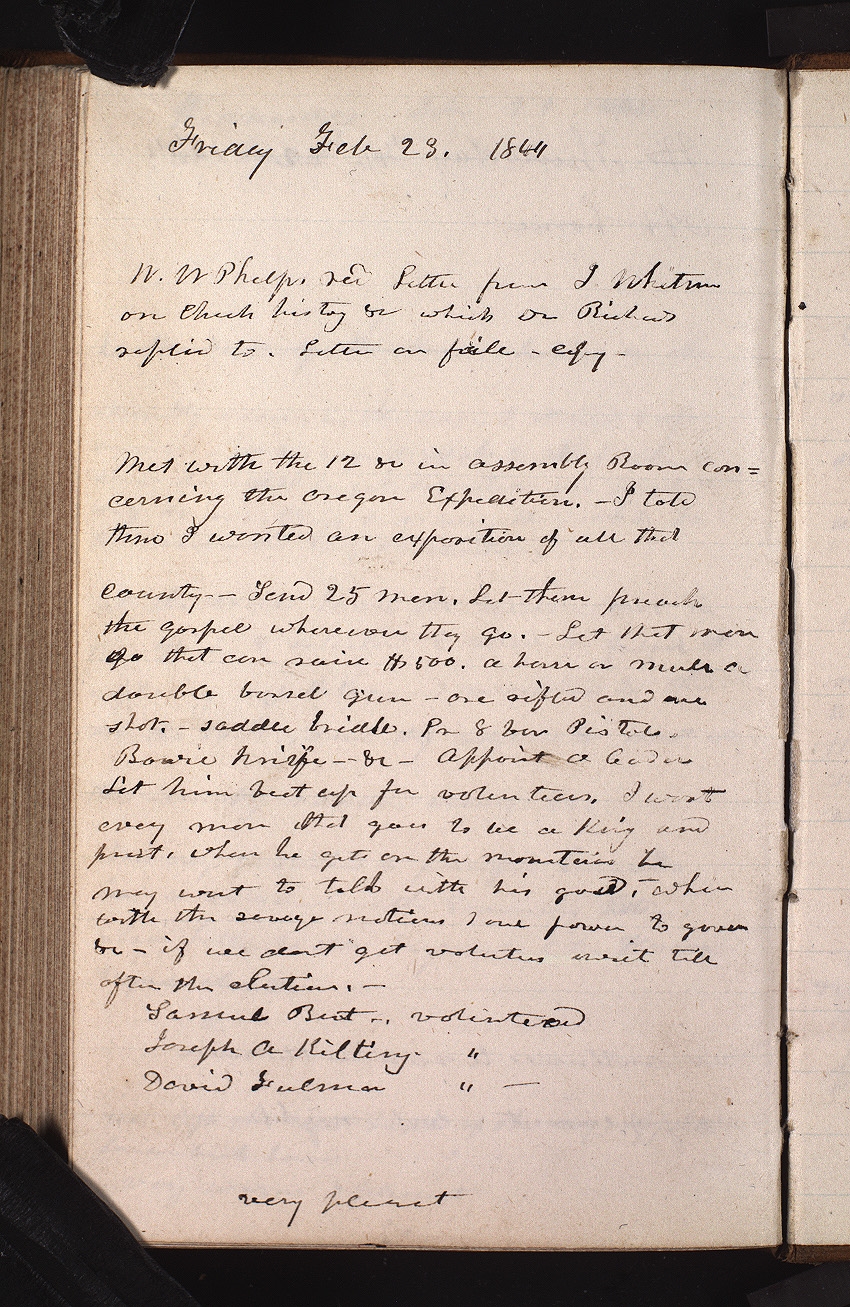 Friday Feb 23. 1844
W. W Phelps. recd Letter from J Whitmer
on Church history &c which Dr Richards
replied to. Letter on file - copy -
Met with the 12 &c in assembly Room con=
cerning the Oregon Expedition. - I told
them I wanted an exposition of all that
country -- Send 25 men. Let them preach
the gospel wherever they go. - Let that man
go that can raise $500. a horse or mule a
double barrel gun - one rifled and one
shot. - saddle bridle. Pr 8 bore Pistols.
Bowie Knife -- &c - Appoint a leader
Let him beat up for volunteers. I want
every man that goes to be a King and
priest. when he gets on the mountains he
may want to talk with his god. - when
with the savage nations have power to govern
&c - if we dont get volunteers wait till
after the election. -
Samuel Bent -. volunteered
Joseph A Kelting. "
David Fulmer " -
very pleasant